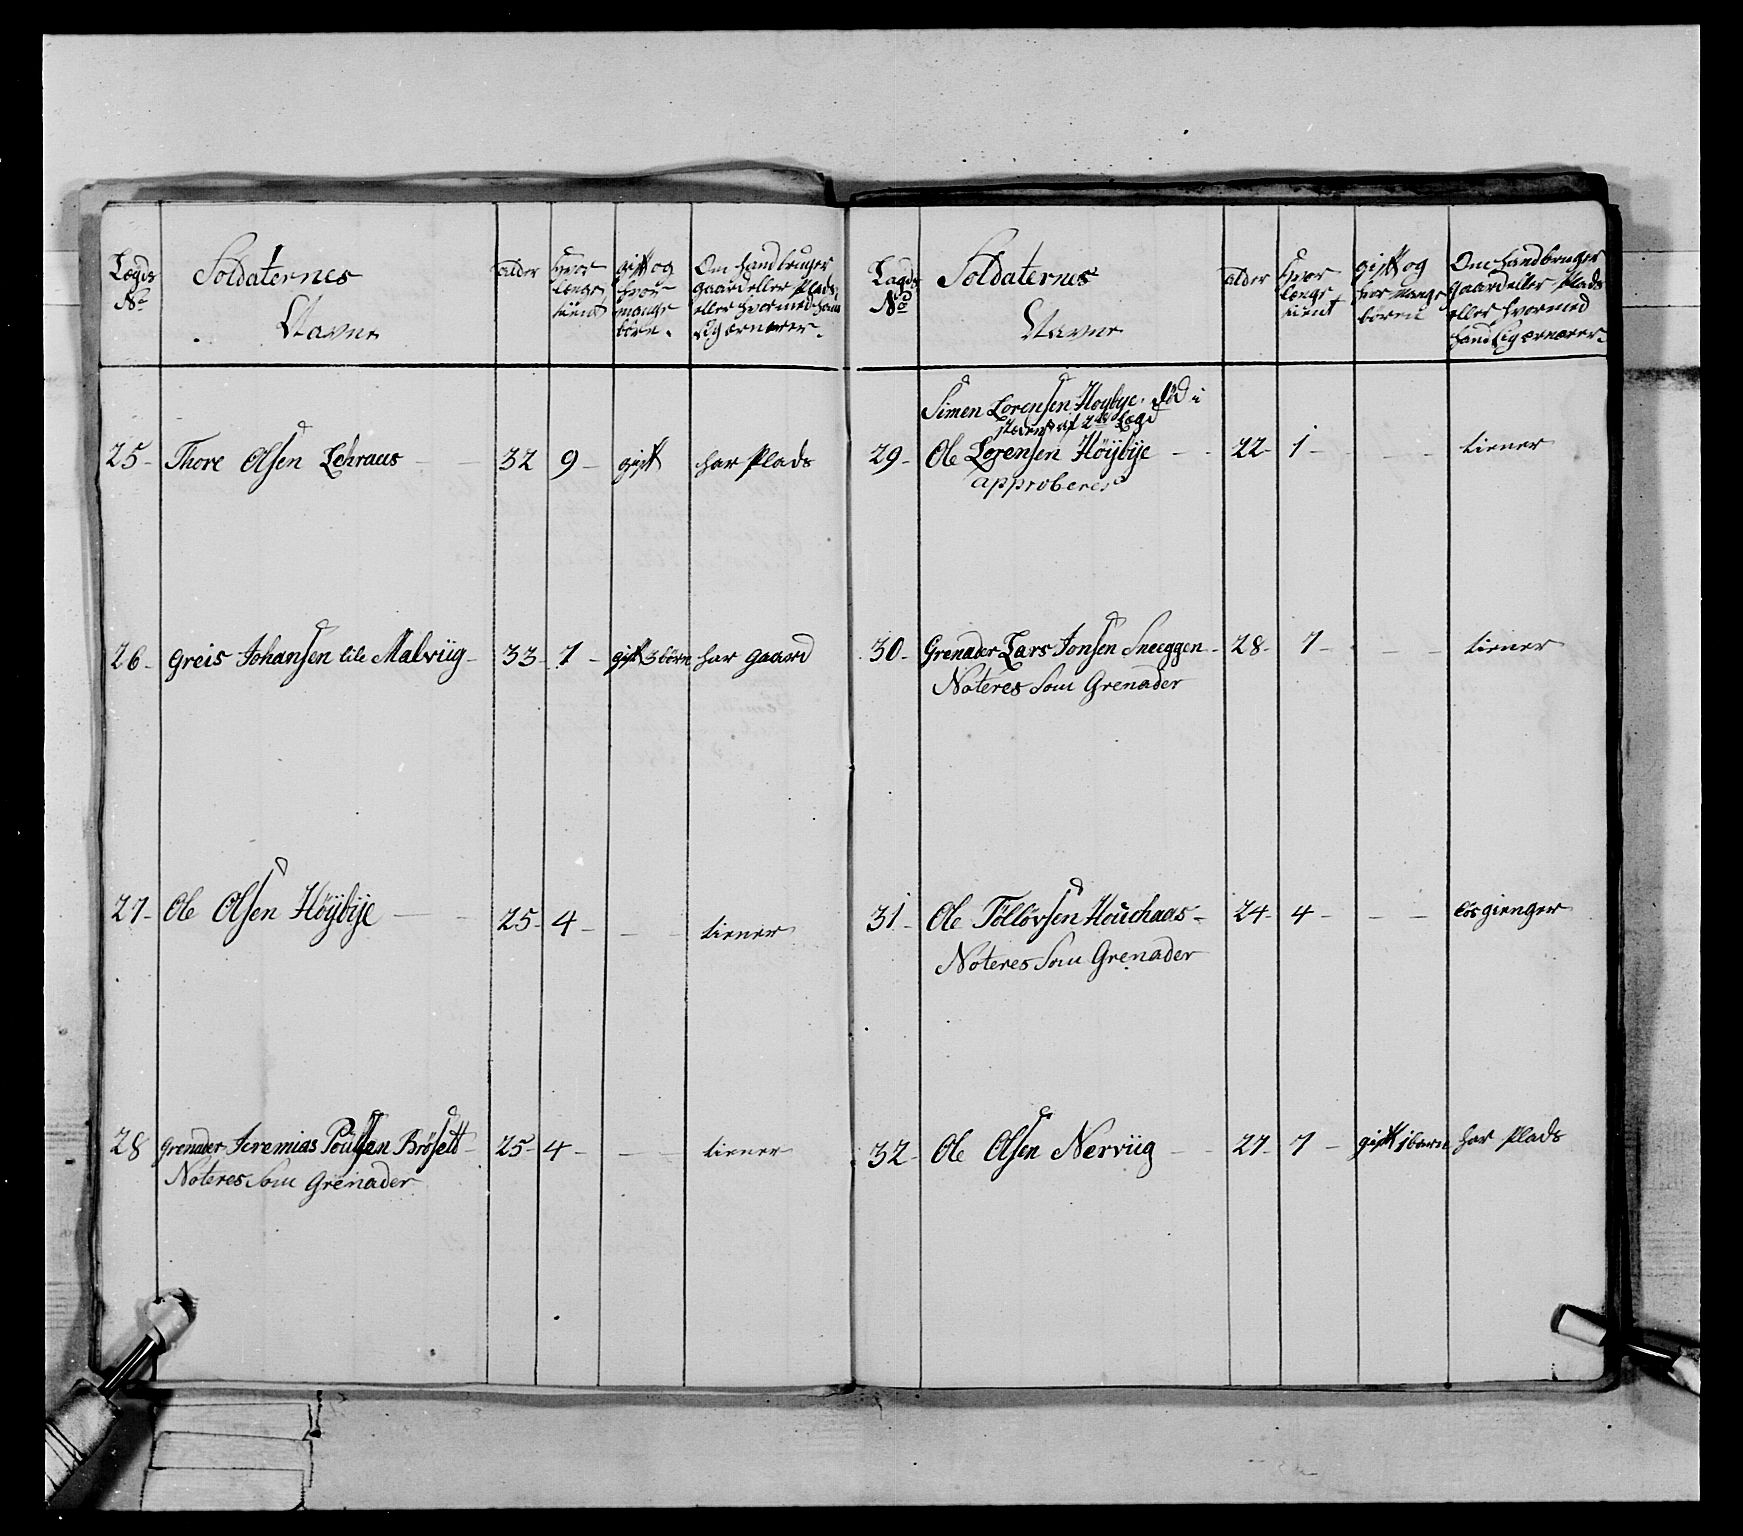 Lægds
No
Soldaternes
Navne
alder
hvor
længe
tient
gift og
hvor
mange
børn.
Om hand bruger
gaard eller Plads,
eller hvormed han
sig ernærer.
25- Thore Olsen Lehraus 32 9- gift har Plads
26- Greis Johansen lile Malviig- 33- 7- gift 3 børn har gaard
27- Ole Olsen Höÿbÿe 25- 4- tiener
28 grenader Jeremias Poulsen Brösett 25- 4- tiener
Noteres Som Grenader
Lægds
No
Soldaternes
Navne
alder
hvor
længe
tient
gift og
hvor mange
børen
Om hand bruger
gaard eller Plads
eller hvormed
hand sig ernærer
Simen Lorensen Hoybye. död i
steden af 2de Lægd
29- Ole Lorensen Höÿbÿe 22- 1- tiener
approberes
30- Grenader Lars Jonsen Sneeggen- 28- 7- tiener
Noteres Som Grenader
31- Ole Töllövsen Houchaas- 24- 4- lösgienger
Noteres Som Grenader
32- Ole Olsen Nerviig 27- 7- gift 1 barn har Plads